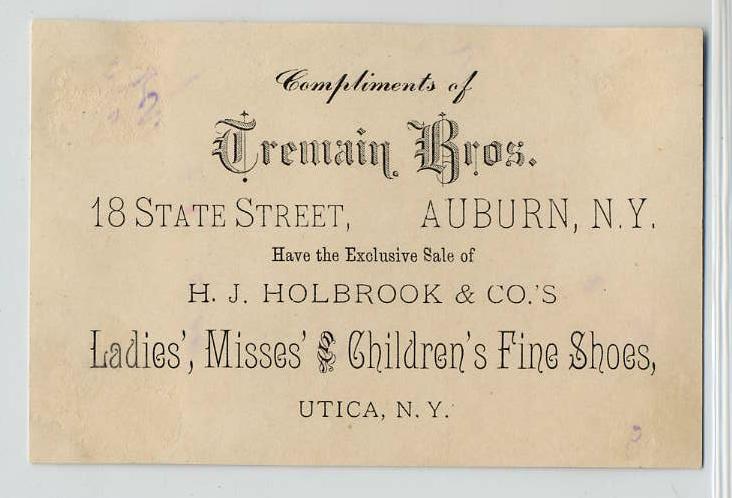 Compliments of
Tremain Bros.
18 STATE STREET, AUBURN, N.Y.
Have the Exclusive Sale of
H. J. HOLBROOK & CO.'S
Ladies', Misses' and Children's Fine Shoes,
UTICA, N. Y.